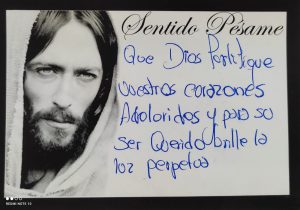 Sentido Pésame
Que Dios Fortifique
vuestros corazones
Adoloridos y para su
ser Querido brille la
luz perpetua
REDMI NOTE 10